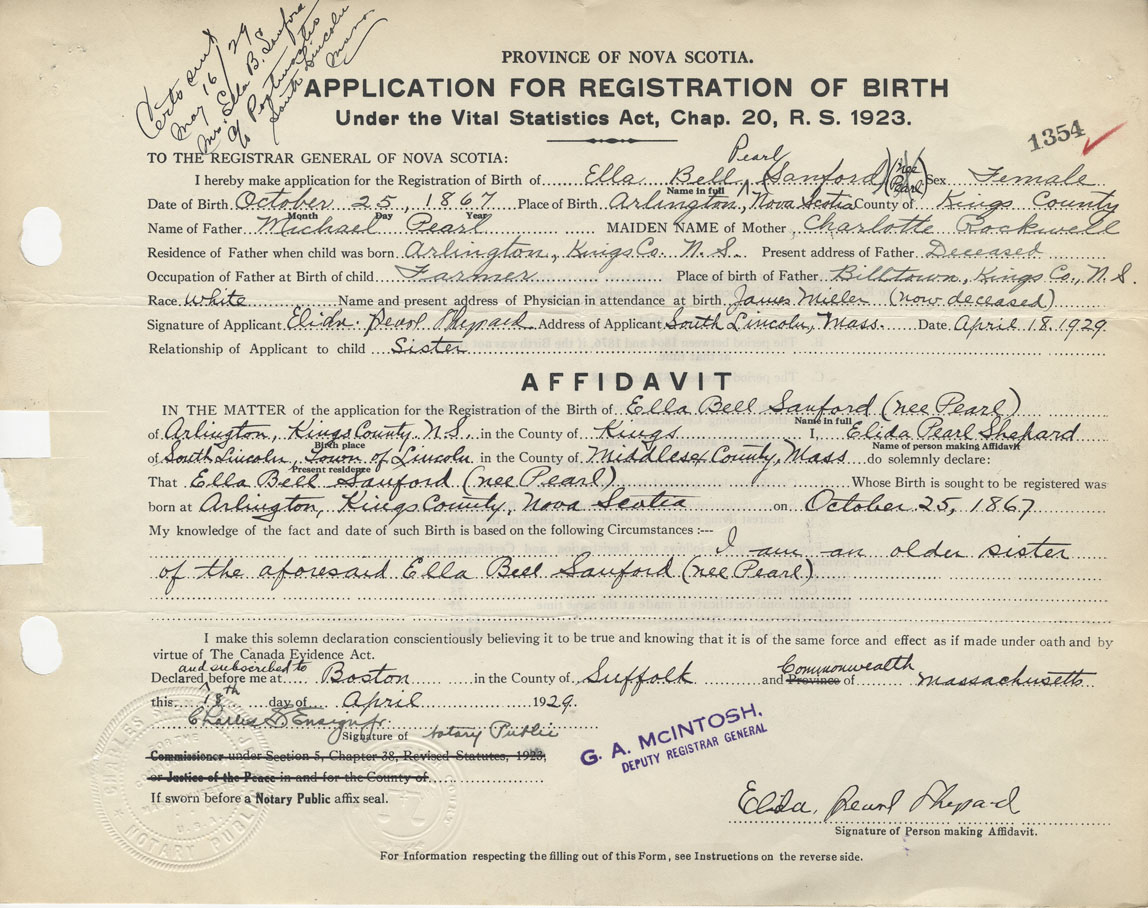 Certs sent
May 16/29
Mrs. Ella B. Sanford
c/o Postmaster
South Lincoln
Mass
PROVINCE OF NOVA SCOTIA.
APPLICATION FOR REGISTRATION OF BIRTH
Under the Vital Statistics Act, Chap. 20, R. S. 1923.
1354
TO THE REGISTRAR GENERAL OF NOVA SCOTIA:
Pearl
I hereby make application for the Registration of Birth of Ella Bell (Sanford) (nee Pearl) Sex Female
Name in full
Date of Birth October 25, 1867 Place of Birth Arlington, Nova Scotia County of Kings County
Month Day Year
Name of Father Michael Pearl MAIDEN NAME of Mother Charlotte Rockwell
Residence of Father when child was born Arlington, Kings Co. N. S. Present address of Father Deceased
Occupation of Father at Birth of child Farmer Place of birth of Father Billtown, Kings Co., N. S.
Race White Name and present address of Physician in attendance at birth James Miller (now deceased)
Signature of Applicant Elida Pearl Shepard Address of Applicant South Lincoln, Mass. Date April 18, 1929
Relationship of Applicant to child Sister
AFFIDAVIT
IN THE MATTER of the application for the Registration of the Birth of Ella Bell Sanford (nee Pearl)
Name in full
of Arlington, Kings County, N.S. in the County of Kings I, Elida Pearl Shepard
Birth place Name of person making Affidavit
of South Lincoln, Town of Lincoln in the County of Middlesex County, Mass do solemnly declare:
Present residence
That Ella Bell Sanford (nee Pearl) Whose Birth is sought to be registered was
born at Arlington, Kings County, Nova Scotia on October 25, 1867
My knowledge of the fact and date of such Birth is based on the following Circumstances :--- I am an older sister
of the aforesaid Ella Bell Sanford (nee Pearl)
I make this solemn declaration conscientiously believing it to be true and knowing that it is of the same force and effect as if made under oath and by
virtue of The Canada Evidence Act.
and subscribed to Commonwealth
Declared before me at Boston in the County of Suffolk and Province of Massachusetts
this 18th day of April 1929.
Charles S. Ensign Jr.
Signature of Notary Public
Commissioner under Section 5, Chapter 38, Revised Statutes, 1923,
or Justice of the Peace in and for the County of
If sworn before a Notary Public affix seal.
G. A. McINTOSH.
DEPUTY REGISTRAR GENERAL
Elida Pearl Shepard
Signature of Person making Affidavit.
For Information respecting the filling out of this Form, see Instructions on the reverse side.